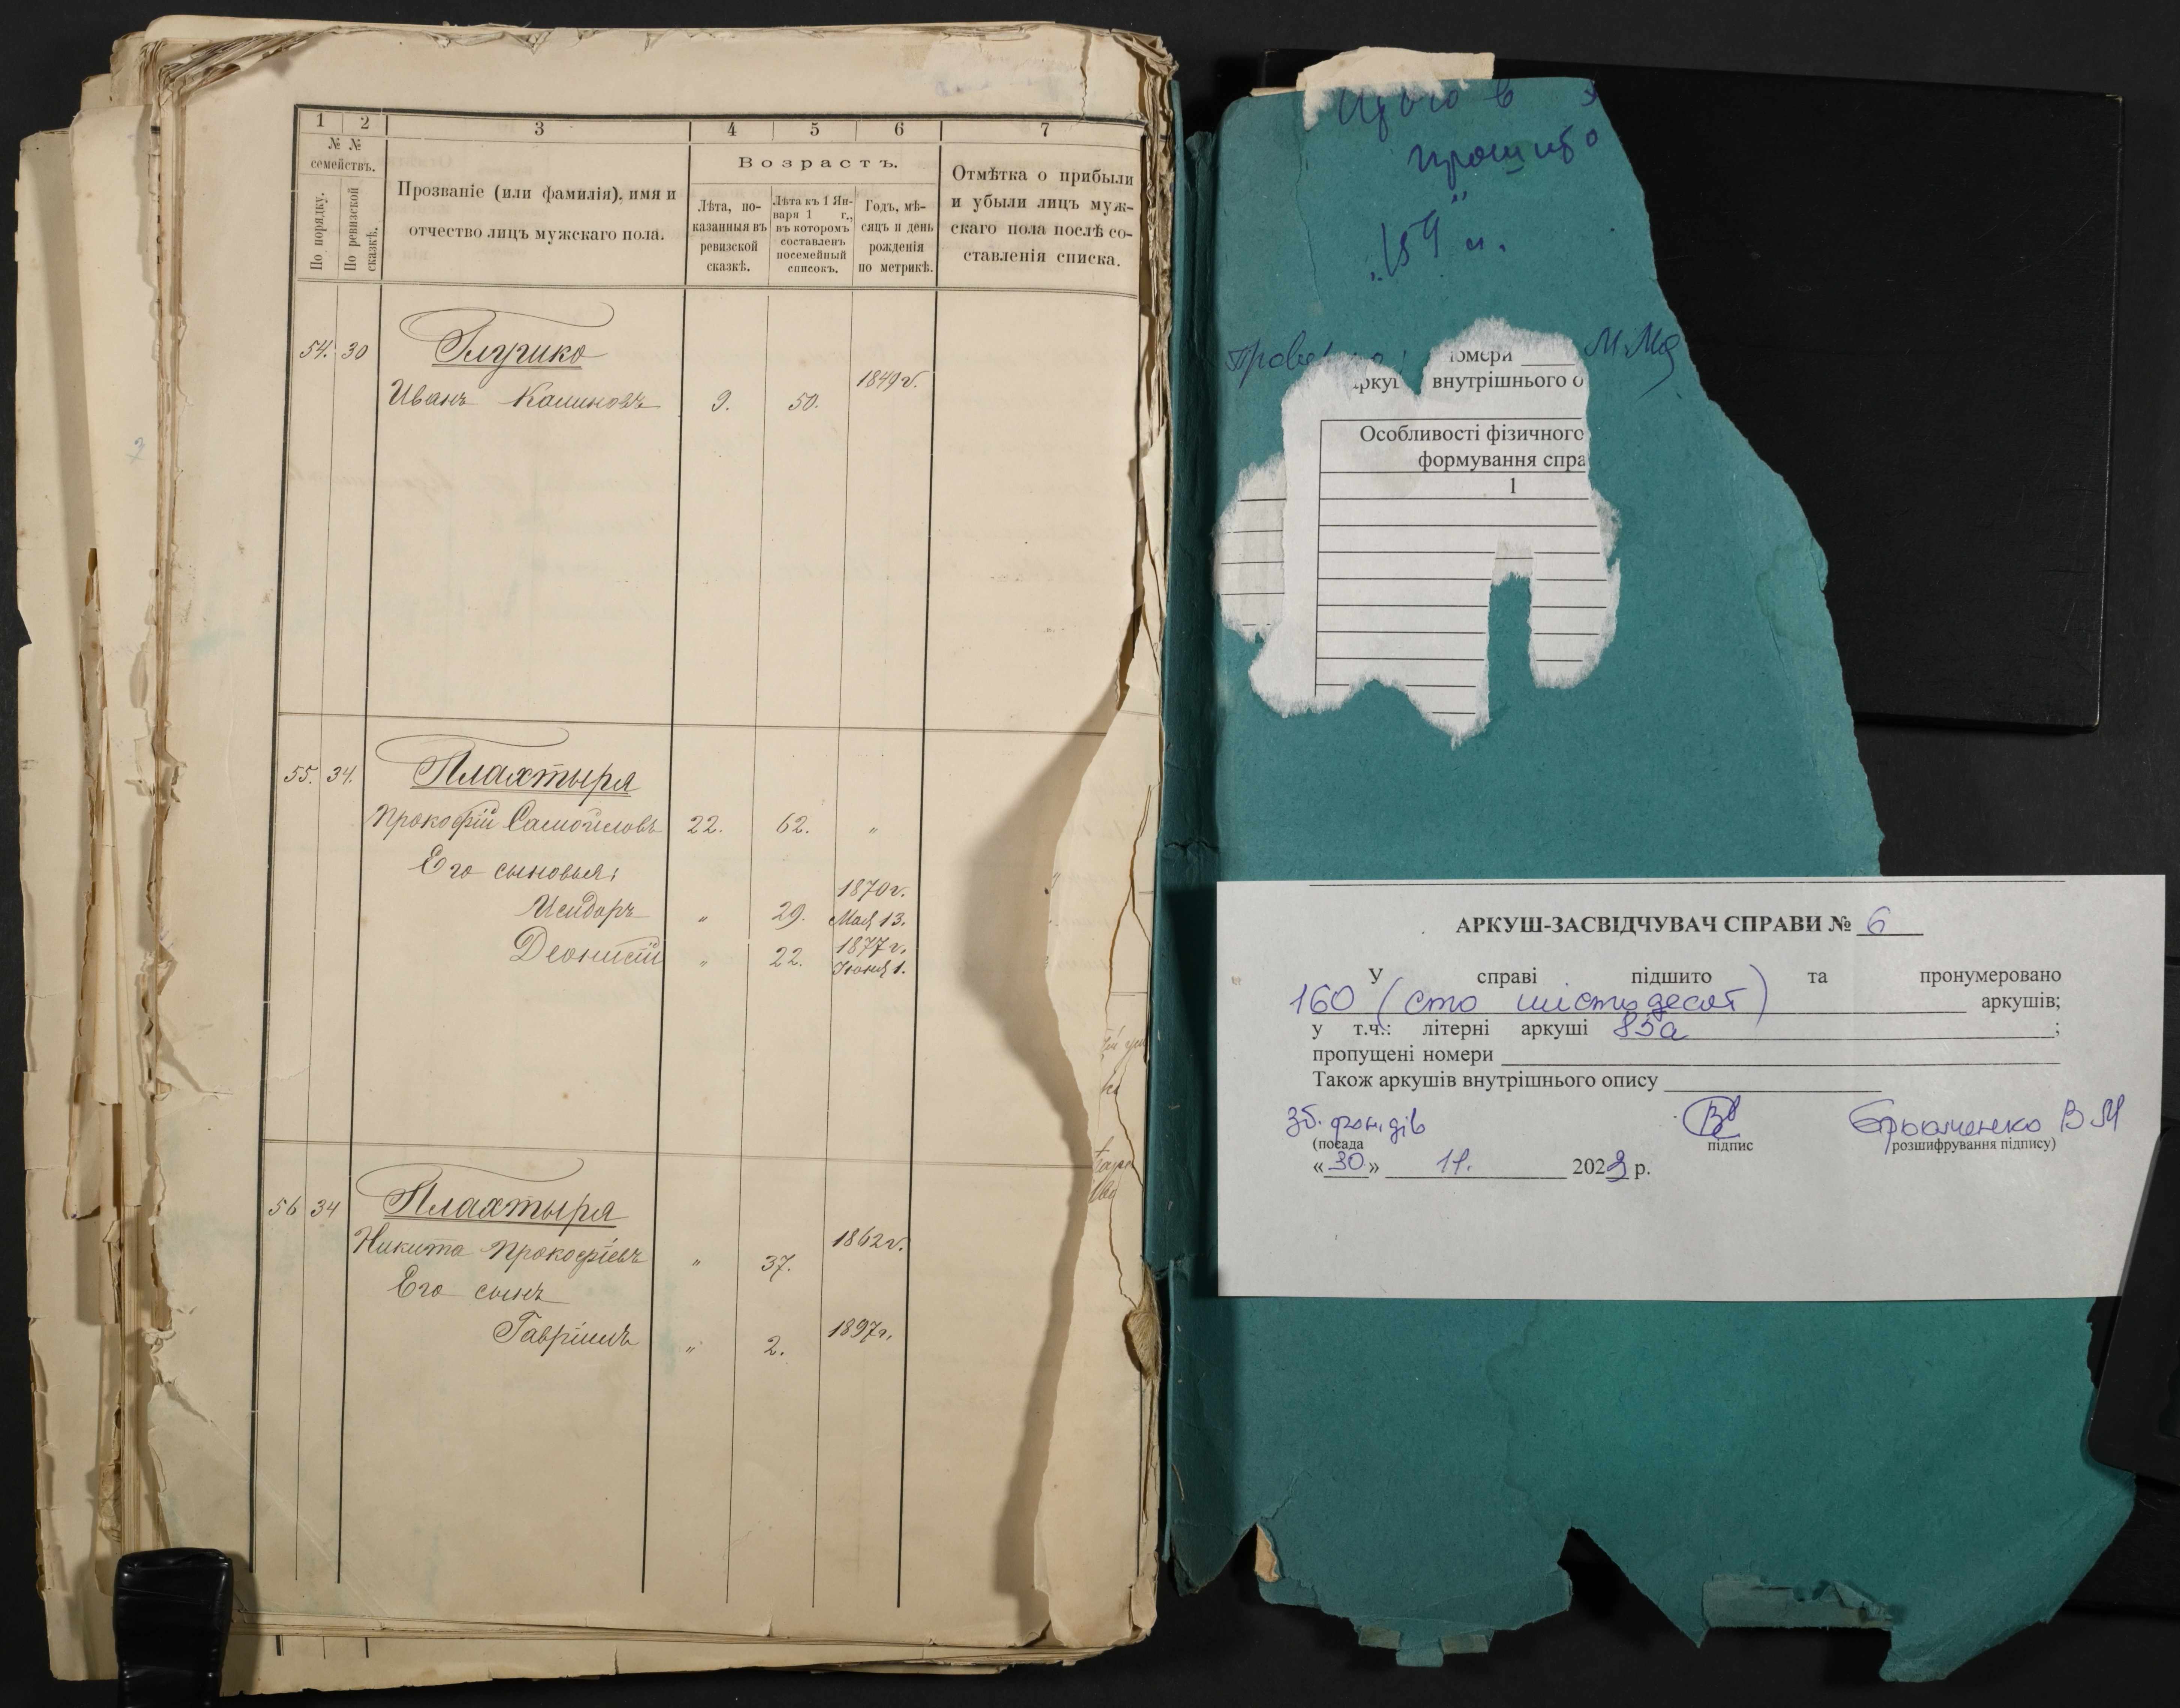 1 2 3 4 5 6 7
№ №
семействъ.
По порядку.
По ревизской
сказкѣ.
Прозваніе (или фамилія), имя и
отчество лицъ мужскаго пола.
Возрастъ.
Лѣта, по-
казанныя въ
ревизской
сказкѣ.
Лѣта къ 1 Ян-
варя 1 г.,
въ которомъ
составленъ
посемейный
списокъ.
Годъ, мѣ-
сяцъ и день
рожденія
по метрикѣ.
Отмѣтка о прибыли
и убыли лицъ муж-
скаго пола послѣ со-
ставленія списка.
54. 30
1849 г.
Иванъ 9. 50.
55. 34. Плахтыря
Прокофій Самойловъ 22. 62. "
Его сыновья:
1870 г.
Исидоръ " 29. Мая 13.
1877 г.
Деонисій " 22. Іюня 1.
56 34 Плахтыря
1862 г.
Никита Прокофіевъ " 37.
Его сынъ
1897 г.
Гавріилъ " 2.
прошито
"159" л.
омери
внутрішнього о
Особливості фізичного
формування спра
1
АРКУШ-ЗАСВІДЧУВАЧ СПРАВИ № 6
У справі підшито та пронумеровано
160 (сто шістдесят) аркушів;
у т.ч.: літерні аркуші 85а ;
пропущені номери
Також аркушів внутрішнього опису
зб. фондів
(посада підпис розшифрування підпису)
«30» 11. 2023 р.